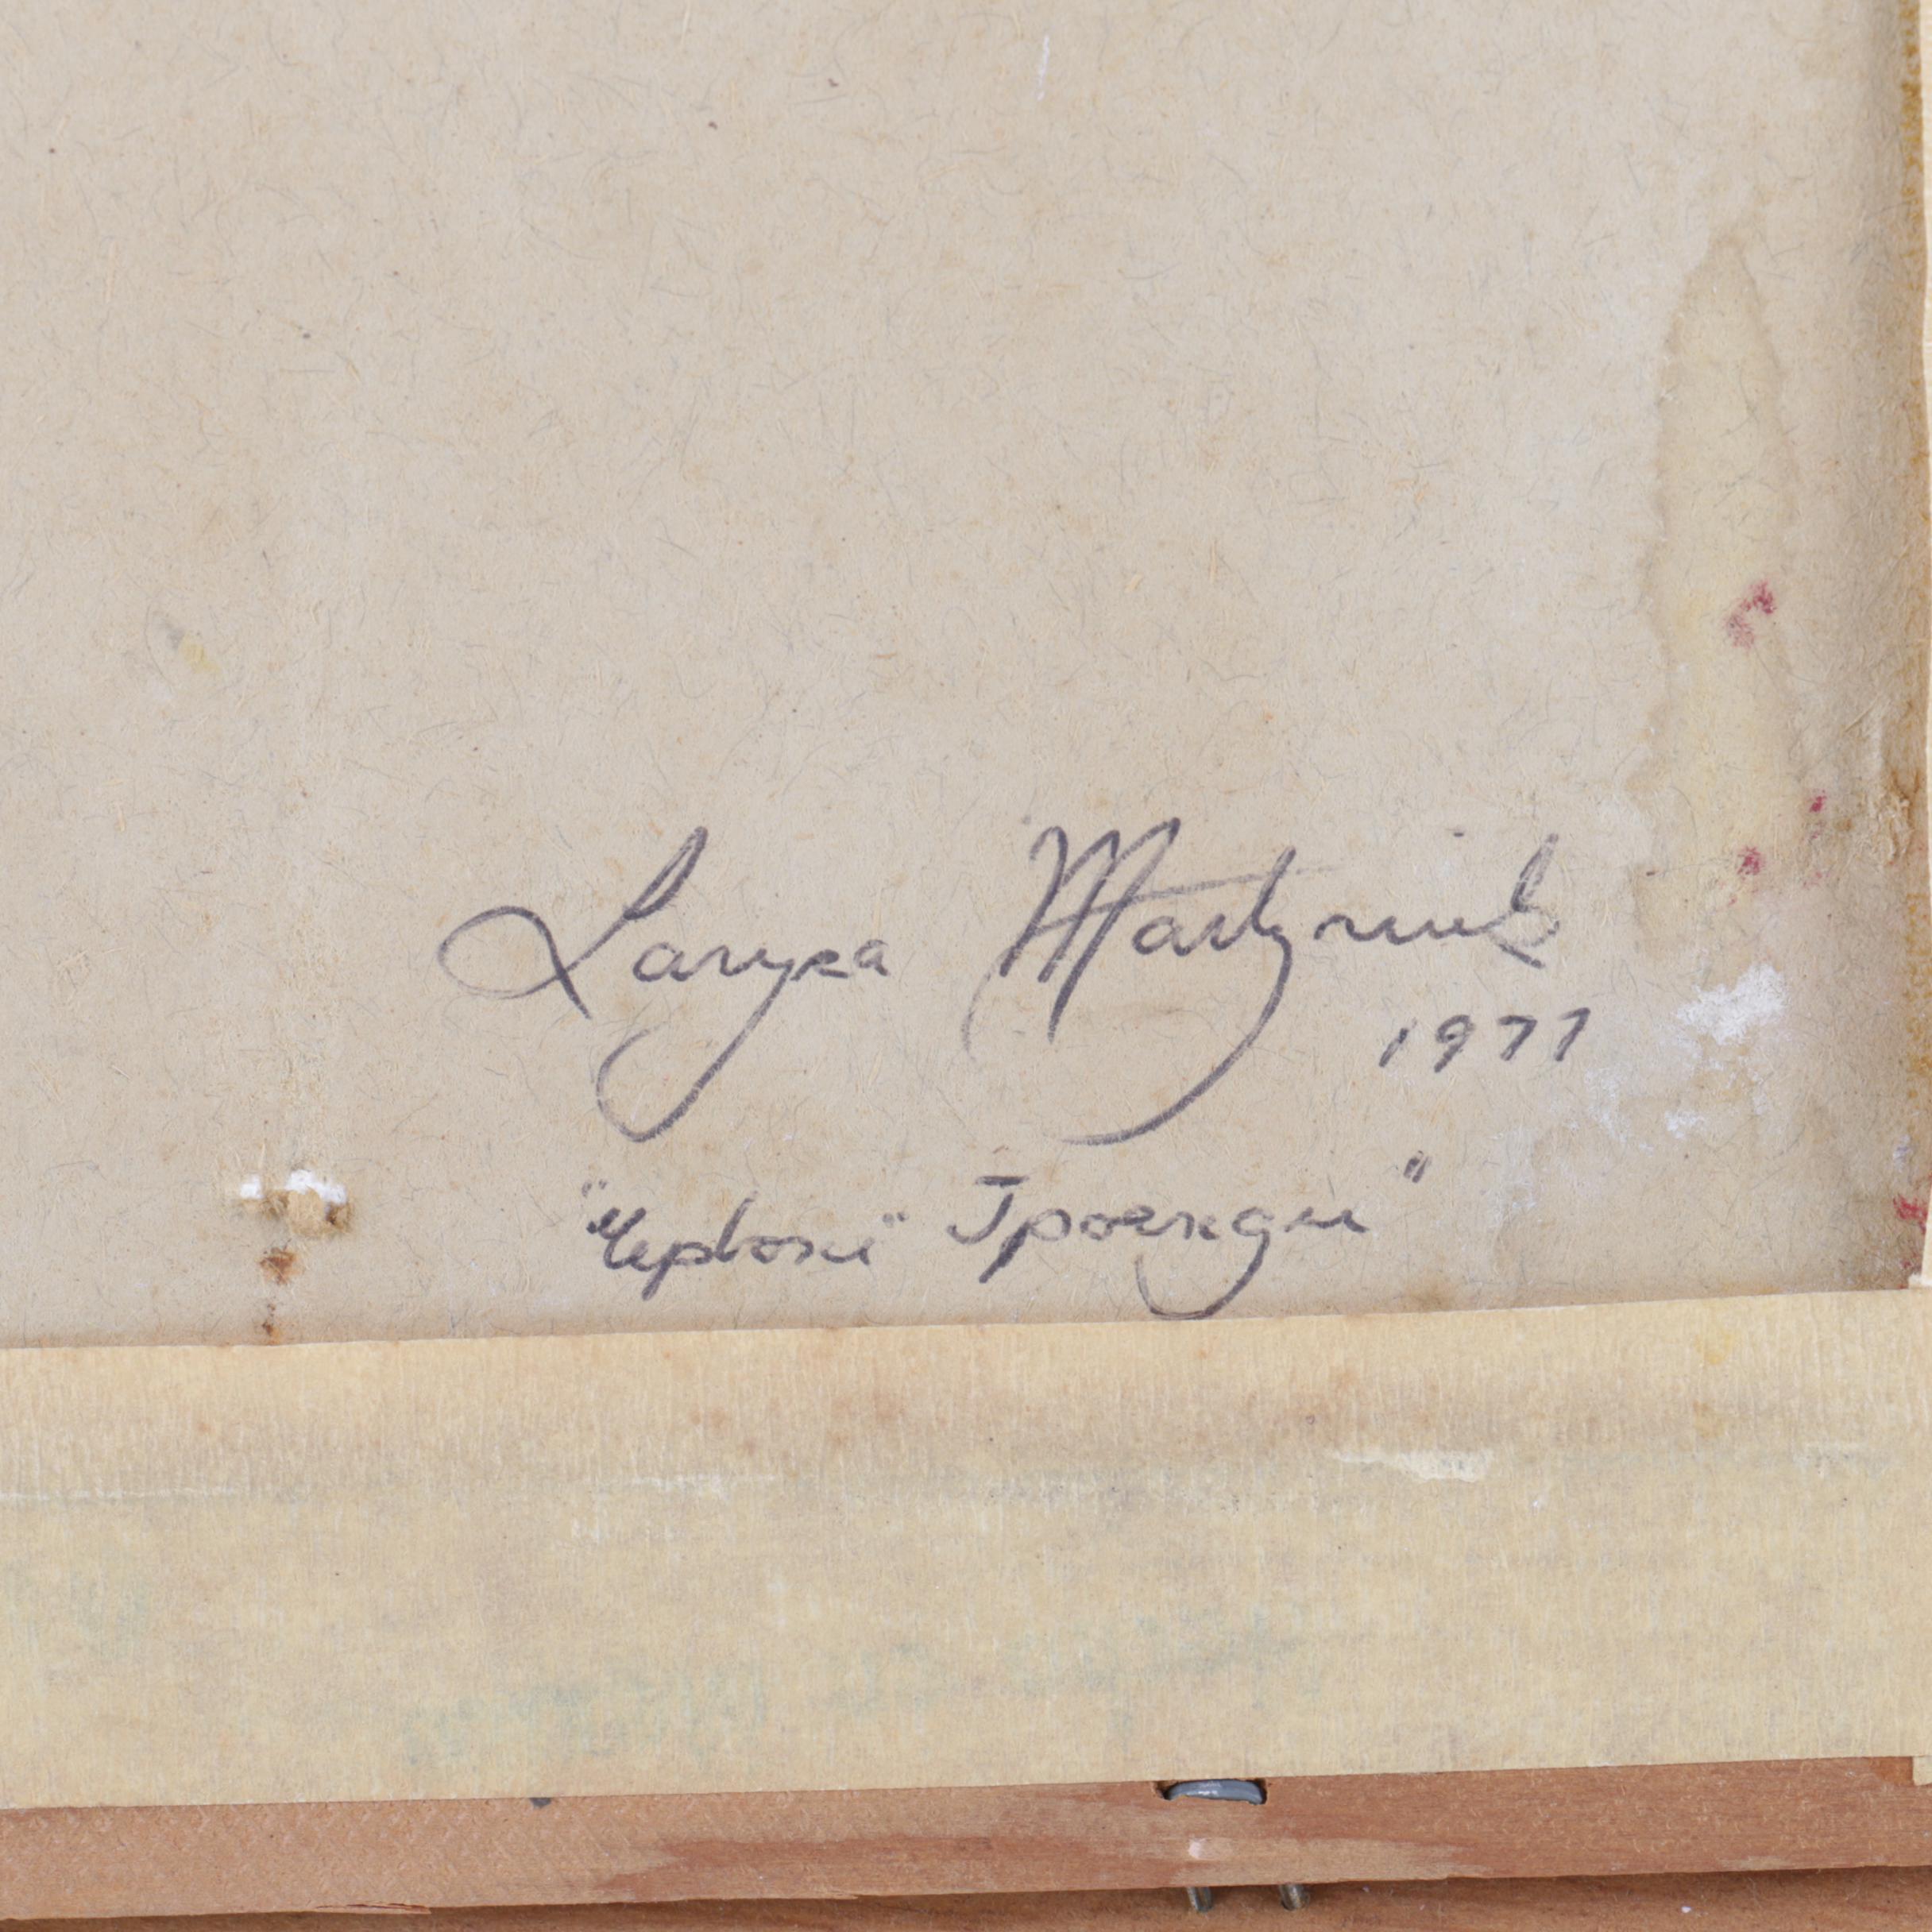 Laryssa Martyniuk
1977
"Червоні" Троянди"